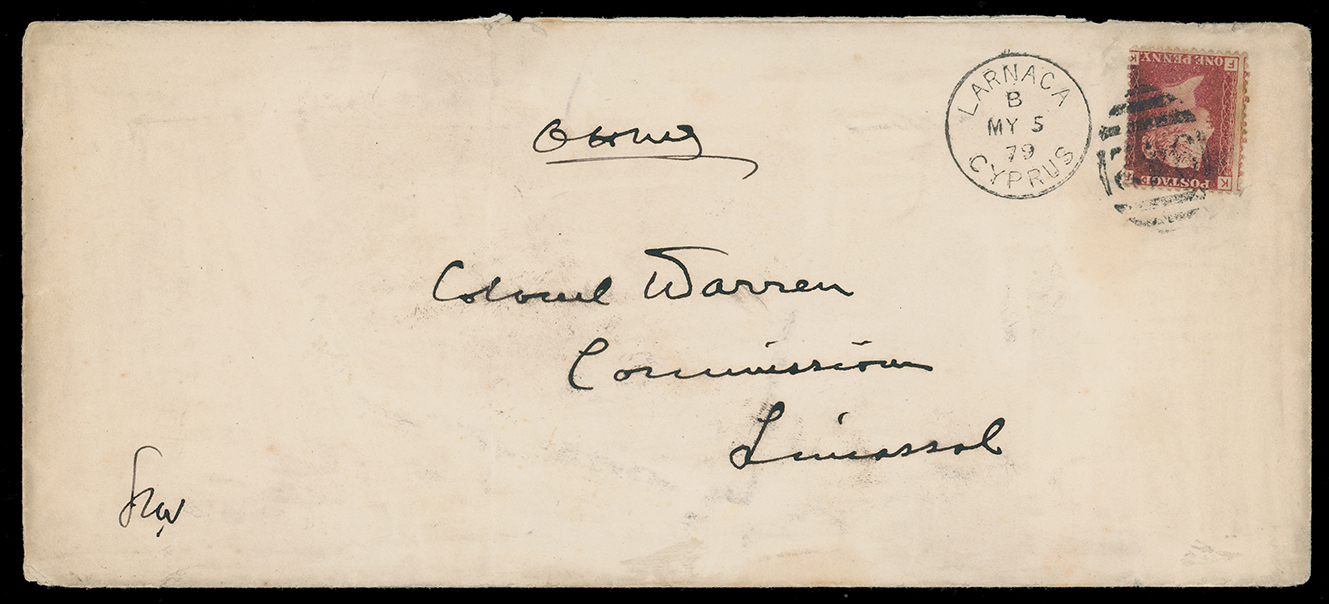 LARNACA
B
MY 5
79
CYPRUS
ONE PENNY
F
K
POSTAGE
K
Colonel Warren
Commissioner
Limassol